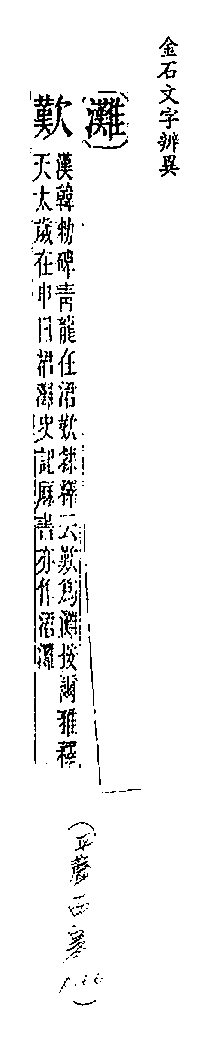 金石文字辨異
(灘)
歎
漢韓勑碑青龍在涒歎隸釋云歎為灘按爾雅釋
天太歲在申曰涒灘史記厤書亦作涒灘
(平聲 寒